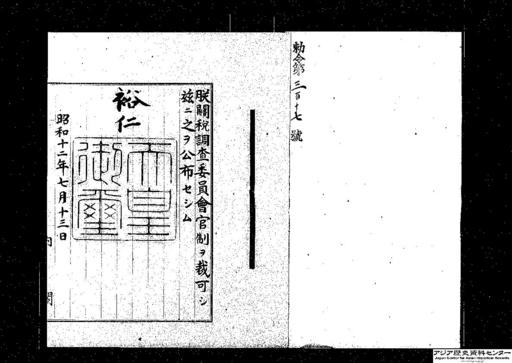 勅令第三百十七號
朕關稅調査委員會官制ヲ裁可シ
玆ニ之ヲ公布セシム
裕仁
天皇
御璽
昭和十二年七月十三日
内閣
アジア歴史資料センター
Japan Center for Asian Historical Records